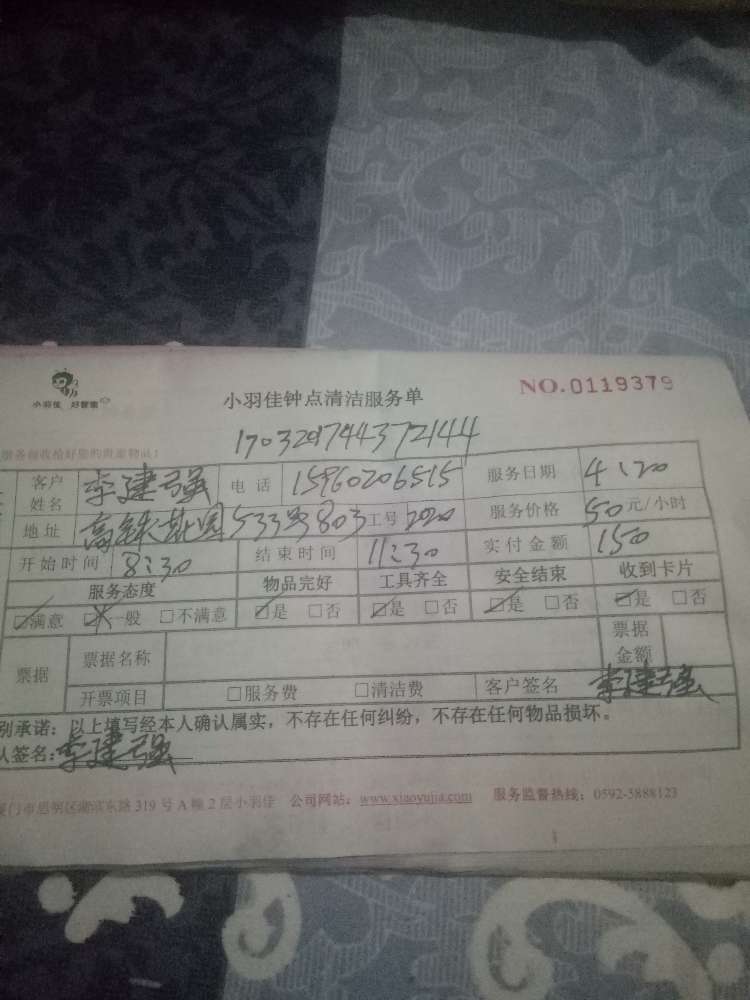 小羽佳 好管家
小羽佳钟点清洁服务单
NO.0119379
1703201744372144
客户姓名 李建强 电话 15960206515 服务日期 4、20
地址 高铁花园533号803 工号 2020 服务价格 50元/小时
开始时间 8:30 结束时间 11:30 实付金额 150
服务态度 物品完好 工具齐全 安全结束 收到卡片
☑满意 一般 □不满意 ☑是 □否 ☑是 □否 ☑是 □否 ☑是 □否
票据 票据名称 票据金额
开票项目 □服务费 □清洁费 客户签名 李建强
别承诺：以上填写经本人确认属实，不存在任何纠纷，不存在任何物品损坏。
人签名：李建强
门市思明区湖滨东路319号A幢2层小羽佳 公司网站：www.xiaoyujia.com 服务监督热线：0592-5888123